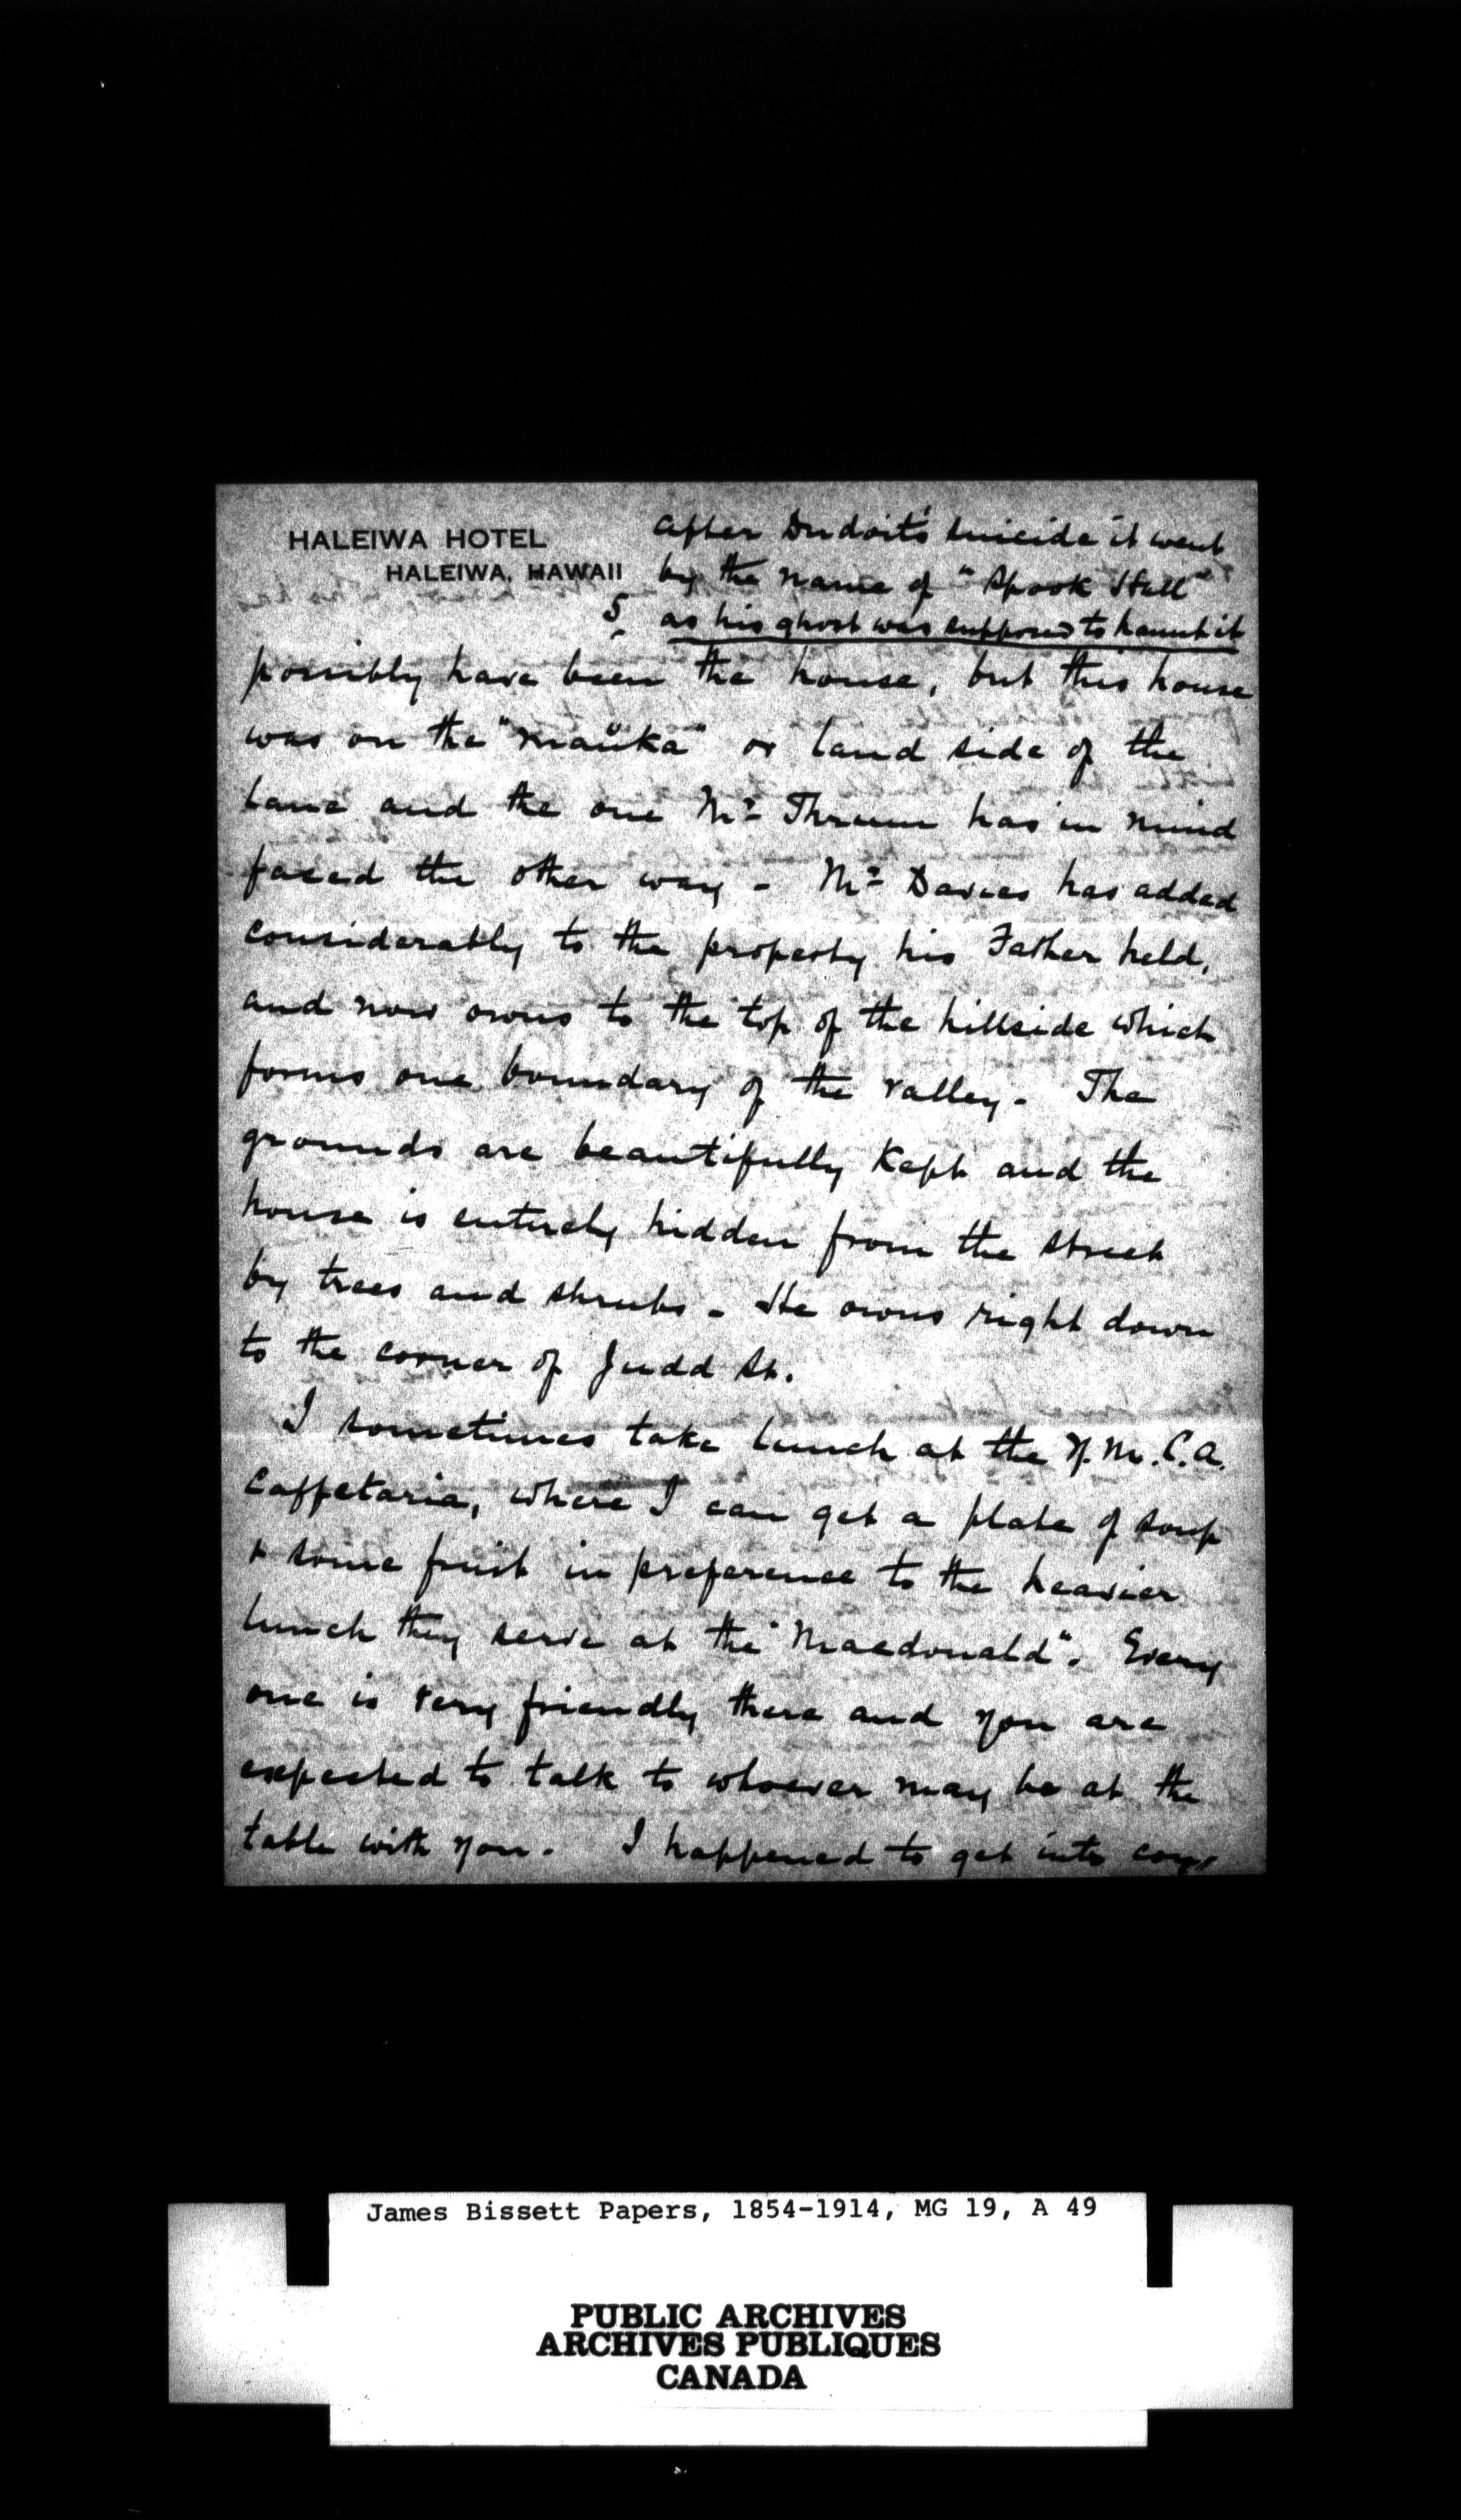 HALEIWA HOTEL
HALEIWA, HAWAII
5
after Dudoit's suicide it went
by the name of "Spook Hall"
as his ghost was supposed to haunt it
possibly have been the house, but this house
was on the "mauka" or land side of the
lane and the one Mr Thrum has in mind
faced the other way - Mr Davies has added
considerably to the property his Father held,
and now owns to the top of the hillside which
forms one boundary of the valley. The
grounds are beautifully kept and the
house is entirely hidden from the street
by trees and shrubs. He owns right down
to the corner of Judd St.
I sometimes take lunch at the Y.M.C.A.
Caffetaria, where I can get a plate of soup
& some fruit in preference to the heavier
lunch they serve at the "Macdonald". Every
one is very friendly there and you are
expected to talk to whoever may be at the
table with you. I happened to get into
James Bissett Papers, 1854-1914, MG 19, A 49
PUBLIC ARCHIVES
ARCHIVES PUBLIQUES
CANADA